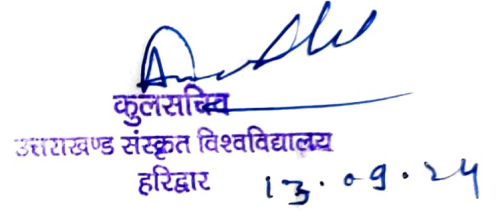 कुलसचिव
उत्तराखण्ड संस्कृत विश्वविद्यालय
हरिद्वार 13.09.24